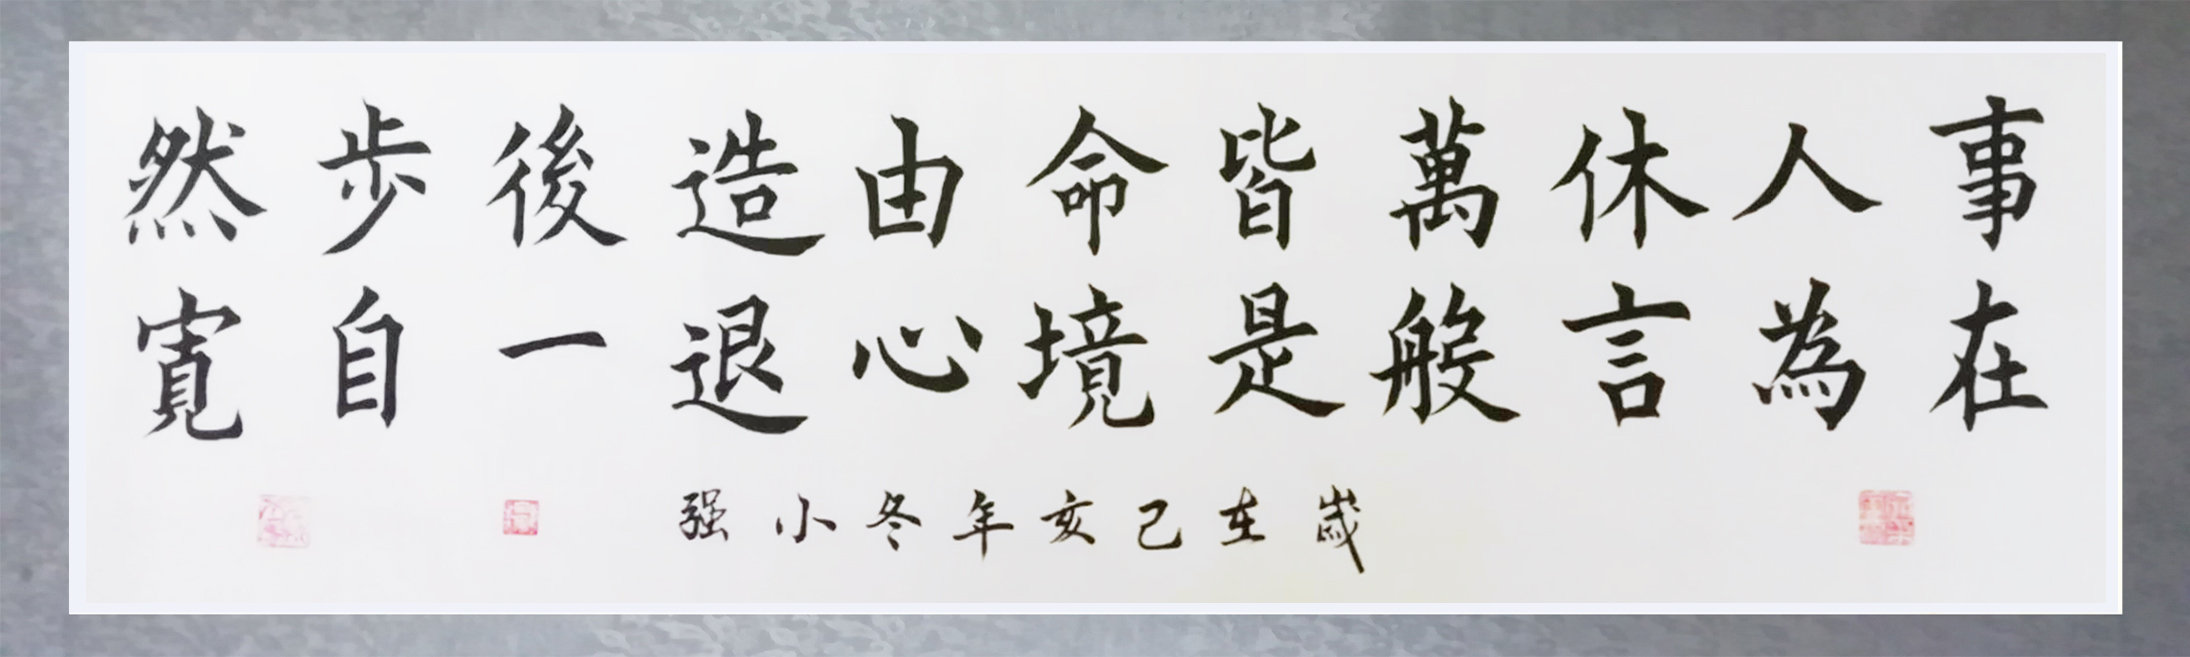 事在
人為
休言
萬般
皆是
命境
由心
造退
後一
步自
然寬
歲在己亥年冬小强